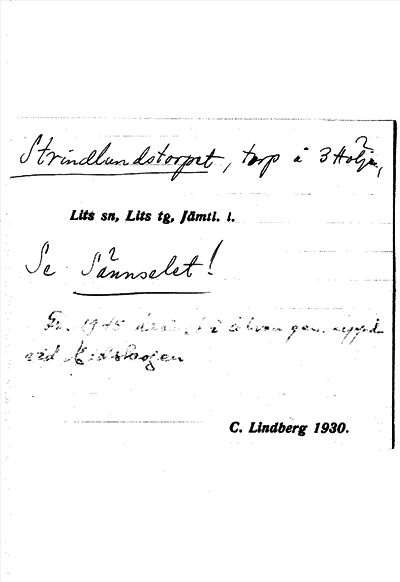 Strindlundstorpet, torp å 3 Hölje,
Lits sn, Lits tg, Jämtl. l.
Se Sännselet!
1945 i älven gm.
vid
C. Lindberg 1930.